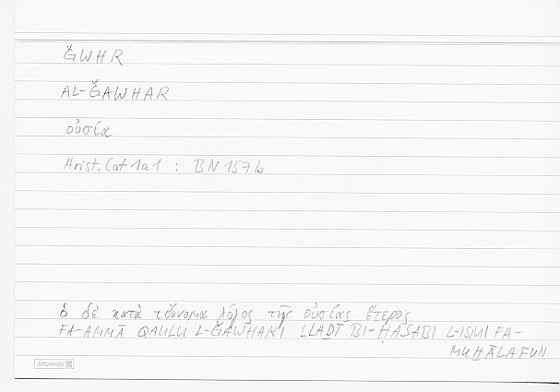 ǦWHR
AL-ǦAWHAR
οὐσία
Arist. Cat 1a1 : BN 157b
ὁ δὲ κατὰ τοὔνομα λόγος τῆς οὐσίας ἕτερος
FA-AMMĀ QAULU L-ǦAWHARI LLAḎĪ BI-ḤASABI L-ISMI FA-
MUḪĀLAFUN
BRUNNEN